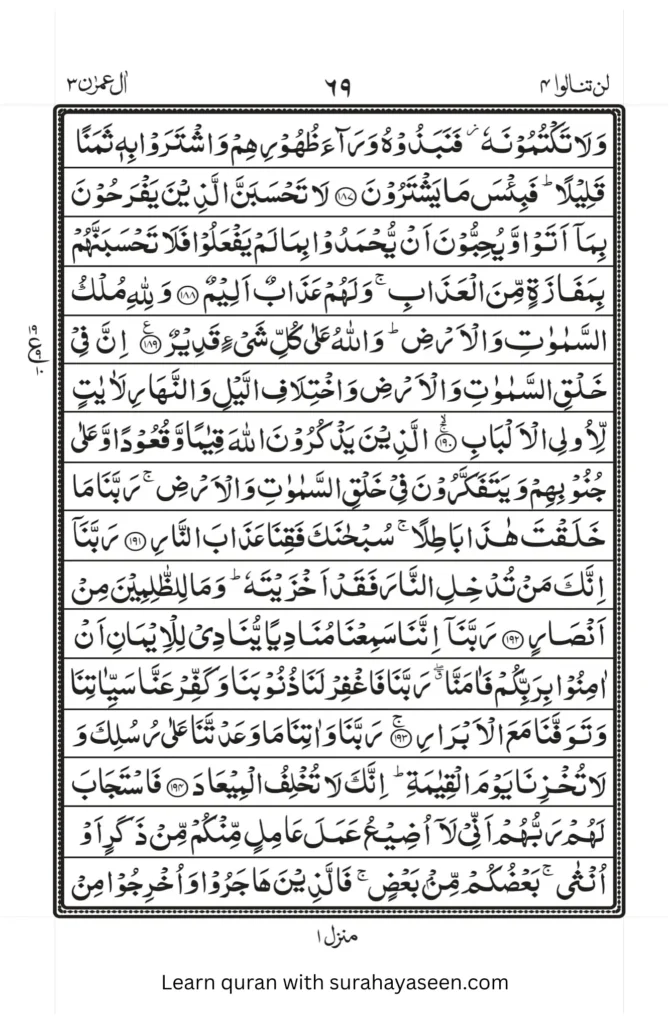 اٰل عمرٰن ٣ ٦٩ لن تنالوا ٤
وَلَا تَكْتُمُوْنَهٗ ۫ فَنَبَذُوْهُ وَرَآءَ ظُهُوْرِهِمْ وَاشْتَرَوْا بِهٖ ثَمَنًا
قَلِيْلًا ؕ فَبِئْسَ مَا يَشْتَرُوْنَ ﴿١٨٧﴾ لَا تَحْسَبَنَّ الَّذِيْنَ يَفْرَحُوْنَ
بِمَاۤ اَتَوْا وَّيُحِبُّوْنَ اَنْ يُّحْمَدُوْا بِمَا لَمْ يَفْعَلُوْا فَلَا تَحْسَبَنَّهُمْ
بِمَفَازَةٍ مِّنَ الْعَذَابِ ۚ وَلَهُمْ عَذَابٌ اَلِيْمٌ ﴿١٨٨﴾ وَلِلّٰهِ مُلْكُ
السَّمٰوٰتِ وَالْاَرْضِ ؕ وَاللّٰهُ عَلٰى كُلِّ شَیْءٍ قَدِيْرٌ ﴿١٨٩﴾ اِنَّ فِیْ
خَلْقِ السَّمٰوٰتِ وَالْاَرْضِ وَاخْتِلَافِ الَّيْلِ وَالنَّهَارِ لَاٰيٰتٍ
لِّاُولِی الْاَلْبَابِ ﴿١٩٠﴾ الَّذِيْنَ يَذْكُرُوْنَ اللّٰهَ قِيٰمًا وَّقُعُوْدًا وَّعَلٰى
جُنُوْبِهِمْ وَيَتَفَكَّرُوْنَ فِیْ خَلْقِ السَّمٰوٰتِ وَالْاَرْضِ ۚ رَبَّنَا مَا
خَلَقْتَ هٰذَا بَاطِلًا ۚ سُبْحٰنَكَ فَقِنَا عَذَابَ النَّارِ ﴿١٩١﴾ رَبَّنَاۤ
اِنَّكَ مَنْ تُدْخِلِ النَّارَ فَقَدْ اَخْزَيْتَهٗ ؕ وَمَا لِلظّٰلِمِيْنَ مِنْ
اَنْصَارٍ ﴿١٩٢﴾ رَبَّنَاۤ اِنَّنَا سَمِعْنَا مُنَادِيًا يُّنَادِیْ لِلْاِيْمَانِ اَنْ
اٰمِنُوْا بِرَبِّكُمْ فَاٰمَنَّا ۖ رَبَّنَا فَاغْفِرْ لَنَا ذُنُوْبَنَا وَكَفِّرْ عَنَّا سَيِّاٰتِنَا
وَتَوَفَّنَا مَعَ الْاَبْرَارِ ﴿١٩٣﴾ رَبَّنَا وَاٰتِنَا مَا وَعَدْتَّنَا عَلٰى رُسُلِكَ وَ
لَا تُخْزِنَا يَوْمَ الْقِيٰمَةِ ؕ اِنَّكَ لَا تُخْلِفُ الْمِيْعَادَ ﴿١٩٤﴾ فَاسْتَجَابَ
لَهُمْ رَبُّهُمْ اَنِّیْ لَاۤ اُضِيْعُ عَمَلَ عَامِلٍ مِّنْكُمْ مِّنْ ذَكَرٍ اَوْ
اُنْثٰى ۚ بَعْضُكُمْ مِّنْۢ بَعْضٍ ۚ فَالَّذِيْنَ هَاجَرُوْا وَاُخْرِجُوْا مِنْ
منزل ١
Learn quran with surahayaseen.com